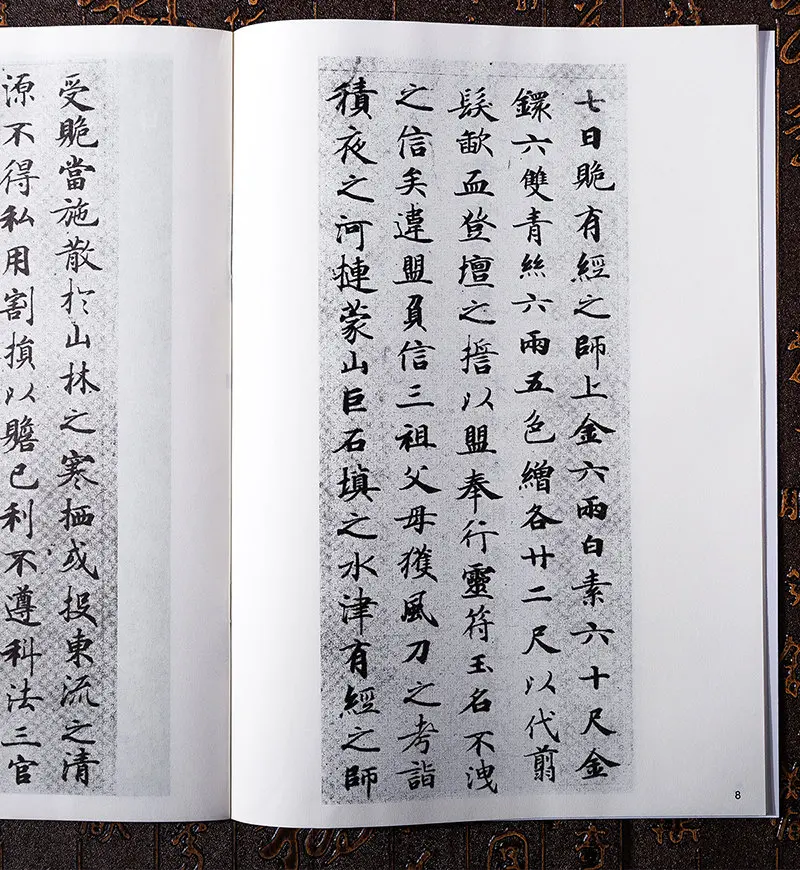 七日䞈有經之師上金六兩白素六十尺金
鐶六雙青絲六兩五色繒各廿二尺以代翦
髮歃血登壇之誓以盟奉行靈符玉名不洩
之信矣違盟負信三祖父母獲風刀之考詣
積夜之河摙蒙山巨石填之水津有經之師
8
受䞈當施散於山林之寒栖或投東流之清
源不得私用割損以贍己利不遵科法三官